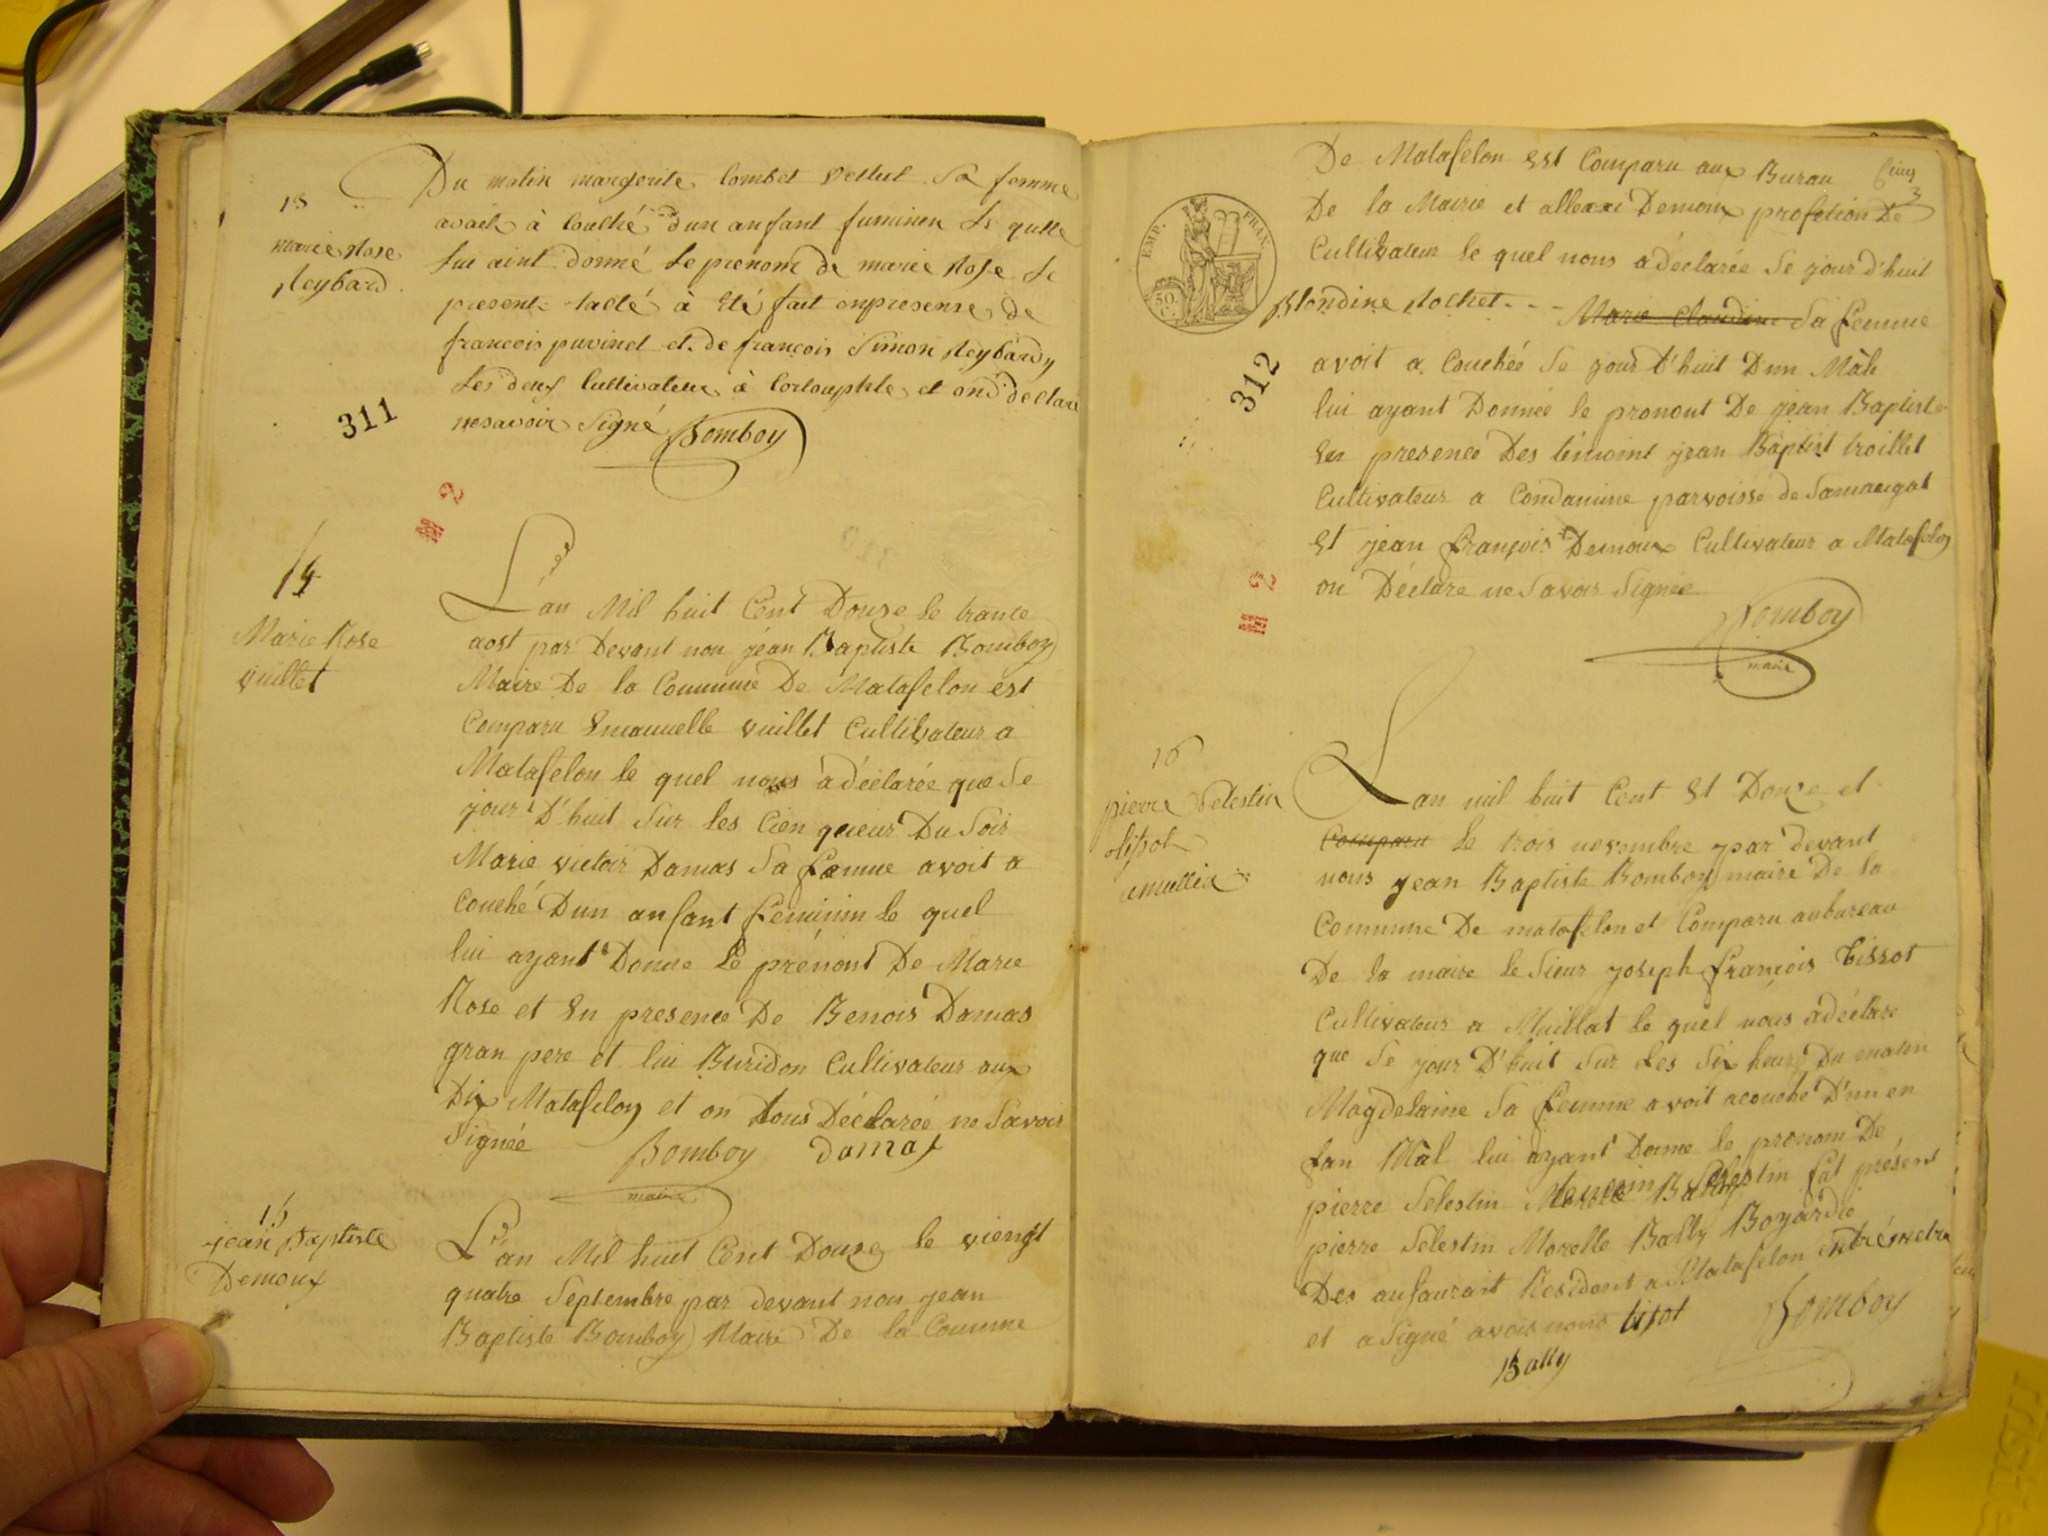 Du matin margerite Combet Vettut Sa femme
13
marie Rose
Reybard
avait à Couché d'un anfant fuminen Le quelle
Lui aint donné Le prenome de marie Rose Le
presente lacté à Eté fait enpresense de
francois puvinel et de françois Simon Reybard
Les deux Cultivateur à Corlouphle et ond declare
nesavoir Signé Bomboy
311
14
Marie Rose
Vuillet
L'an Mil huit Cent Douze le trante
aost par Devant nou jéan Baptiste Bomboy
Maire De la Commune De Matafelon est
Comparu Emanuelle vuillet Cultivateur a
Matafelon le quel nous a déclarée que Se
jour D'huit Sur les Cien queur Du Soir
Marie victoir Damas Sa Famme avoit a
Couché Dun anfant Feminim le quel
lui ayant Donne Le prénont De Marie
Rose et En presence De Benois Damas
gran pere et lui Buridon Cultivateur aux
Dix Matafelon et on tous Déclarée ne Savoir
Signée Bomboy damas
maire
15
jean Baptiste
Demoux
L'an Mil huit Cent Douze le viengt
quatre Septembre par devant nou jean
Baptiste Bomboy Maire De la Comune
De Matafelon est Comparu aux Burau
3
De la Mairie et allexxi Demoux profetion De
Cultivateur le quel nous a déclarée Se jour d'huit
EMP. FRAN.
50 C.
Blondine Rochet - - - Marie Claudine Sa Femme
312
avoit a Couchée Se jour D'huit Dun Mâle
lui ayant Donnée le pronont De jean Baptiste
En presence Des témoint jean Baptist troillet
Cultivateur a Condamine parvoisse de Samaugat
Et jean François Demoux Cultivateur a Matafelon
on Déclare ne Savoir Signée
Bomboy
maire
16
pierre Selestin
tissot
emullia
Lan mil huit Cent Et Douze et
Comparu le trois novembre par devant
nous jean Baptiste Bomboy maire De la
Commune De matafelon et Comparu aubureau
De la maire le Sieur joseph François tissot
Cultivateur a Muillat le quel nous adéclare
que Se jour D'huit Sur Les Six heur Du matin
Magdelaine Sa Femme avoit acouché D'un en
fan Mâl lui ayant Donne le pronom De
pierre Selestin fat présent
pierre Selestin Morelle Bally Boyardie
Des anfaurant Resident a Matafelon
et a Signé avois nous tisot Bomboy
Bally